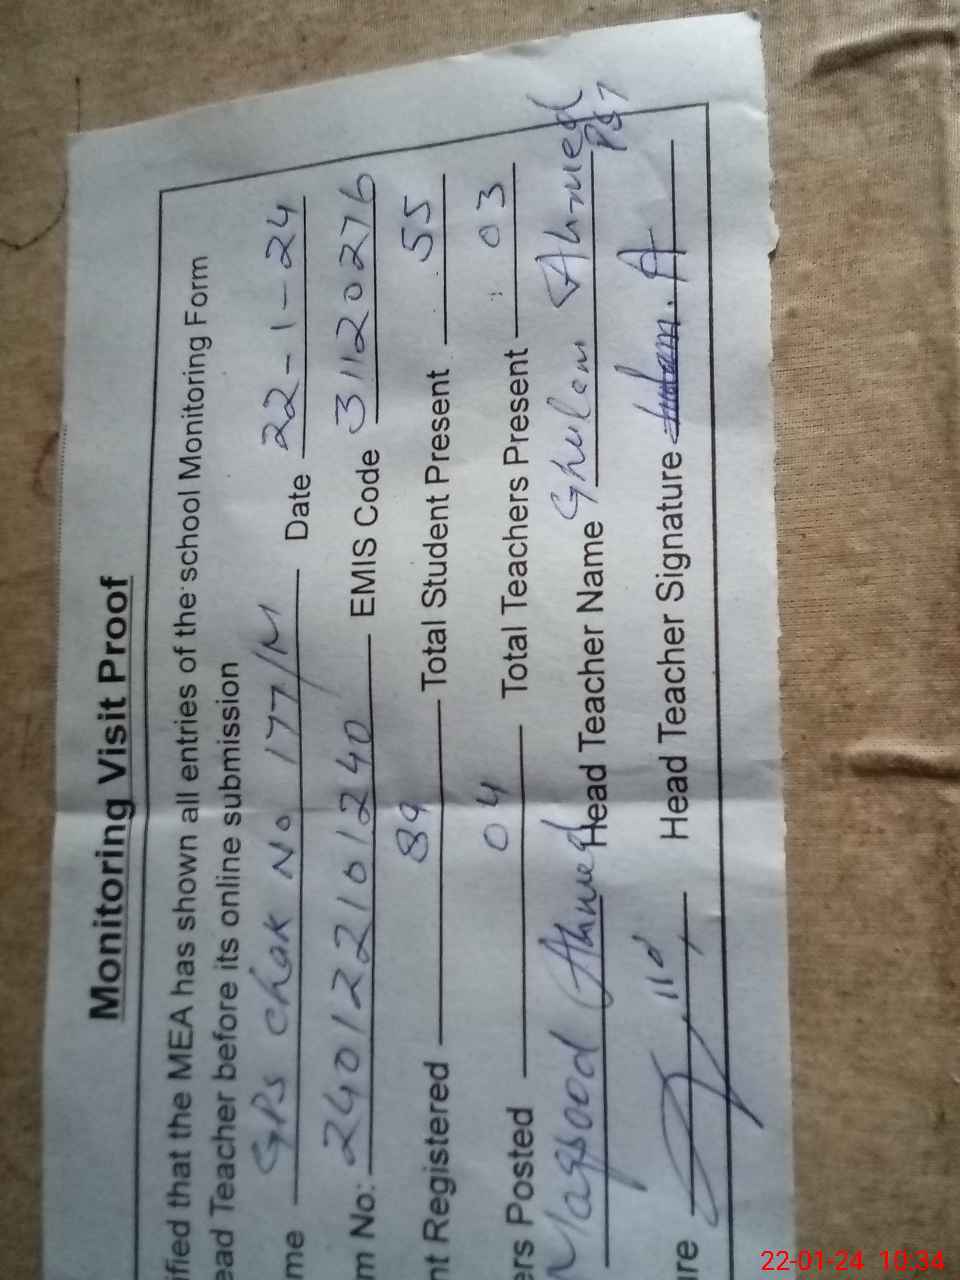 Monitoring Visit Proof
ified that the MEA has shown all entries of the school Monitoring Form
ead Teacher before its online submission
me GPS Chak No 177/M Date 22-1-24
m No: 240122101240 EMIS Code 31120276
nt Registered 89 Total Student Present 55
ers Posted 04 Total Teachers Present 03
Maqsood Ahmed Head Teacher Name Ghulam Ahmed
PST
re Head Teacher Signature
22-01-24 10:34